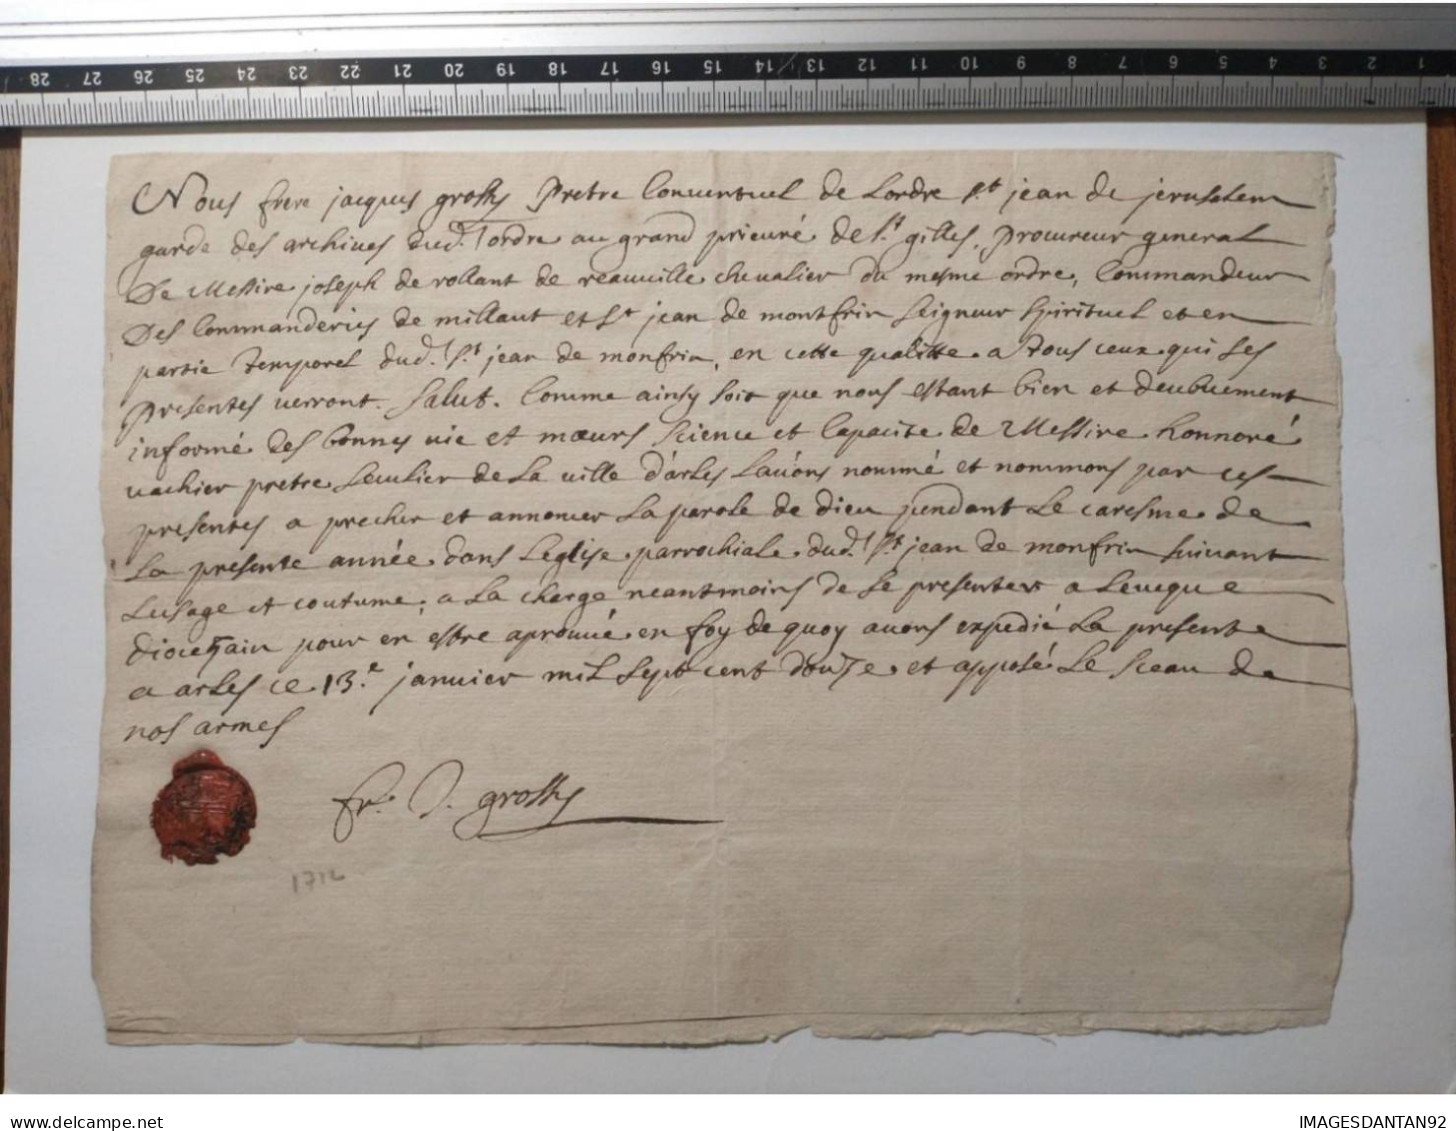 28 27 26 25 24 23 22 21 20 19 18 17 16 15 14 13 12 11 10 9 8 7 6 5 4 3 2 1
Nous frere jacques grossy Pretre Conventuel de Lordre st jean de jerusalem
garde des archives dud. ordre au grand prieuré de st gilles, Procureur general
De Messire joseph de rollant de reauville chevalier du mesme ordre, Commandeur
Des Commanderies de millaut et st jean de montfrin seigneur spirituel et en
partie temporel dud. st jean de monfrin, en cette qualitte a tous ceux qui ses
presentes verront salut. Comme ainsy soit que nous estant bien et deubuement
informé des bonnes vie et mœurs science et capacite de Messire honnoré
vachier pretre seculier de la ville d'arles lavons nommé et nommons par ces
presentes a precher et annoncer la parole de dieu pendant le caresme de
la presente année dans leglise parrochiale dud. st jean de monfrin suivant
lusage et coutume, a la charge neantmoins de se presenter a leveque
diocesain pour en estre aprouvé en foy de quoy avons expedié la presente
a arles ce 13.e janvier mil sept cent douze et apposé le sceau de
nos armes
fr. J. grossy
1712
www.delcampe.net
IMAGESDANTAN92